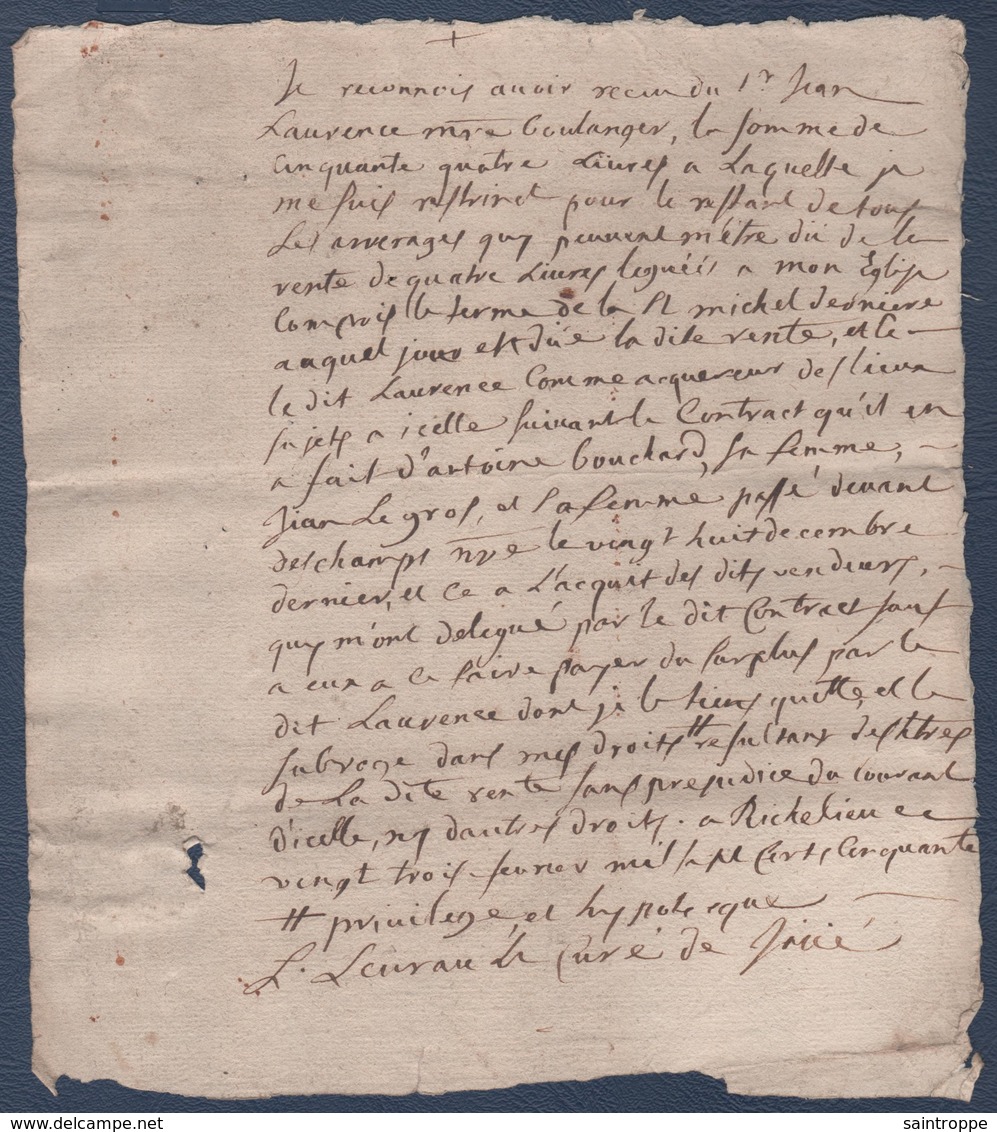 +
Je reconnois auoir receu du Sr Jean
Laurence mtre boulanger, la somme de
cinquante quatre Liures a Laquelle je
me suis restrinct pour le restant de tous
Les arrerages quy peuuent m'être dû de la
rente de quatre Liures leguéé a mon Eglise
compris le terme de la St michel derniere
auquel jour est düe la dite rente, et ce
le dit Laurence comme acquereur des lieux
sujets a icelle suiuant le Contract qu'il en
a fait d'antoine bouchard, sa femme,
Jean Le gros, et sa femme passé deuant
deschamps nre le vingt huit decembre
dernier, et ce a L'acquit des dits vendeurs,
quy m'ont delegué par le dit Contract sauf
a eux a se faire payer du surplus par le
dit Laurence dont je le tiens quitte, et le
subroge dans mes droits # resultant des titres
de La dite rente sans prejudice du courant
d'icelle, ny dautres droits. a Richelieu ce
vingt trois feurier mil sept cents cinquante
# priuilege et hypoteque
L. Leurault curé de Jaié
delcampe.net
saintroppe